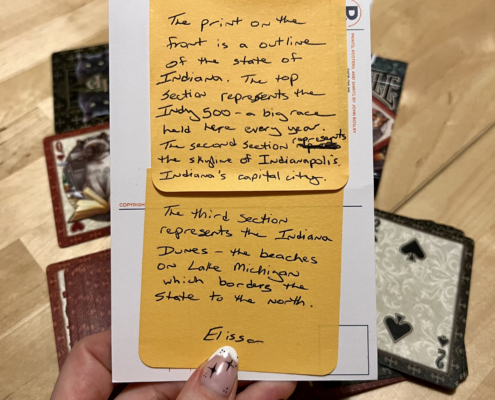 The print on the
front is a outline
of the state of
Indiana. The top
section represents the
Indy 500 - a big race
held here every year.
The second section represents
the skyline of Indianapolis,
Indiana's capital city.
The third section
represents the Indiana
Dunes - the beaches
on Lake Michigan
which borders the
state to the north.
Elissa
COPYRIGH
THE
2